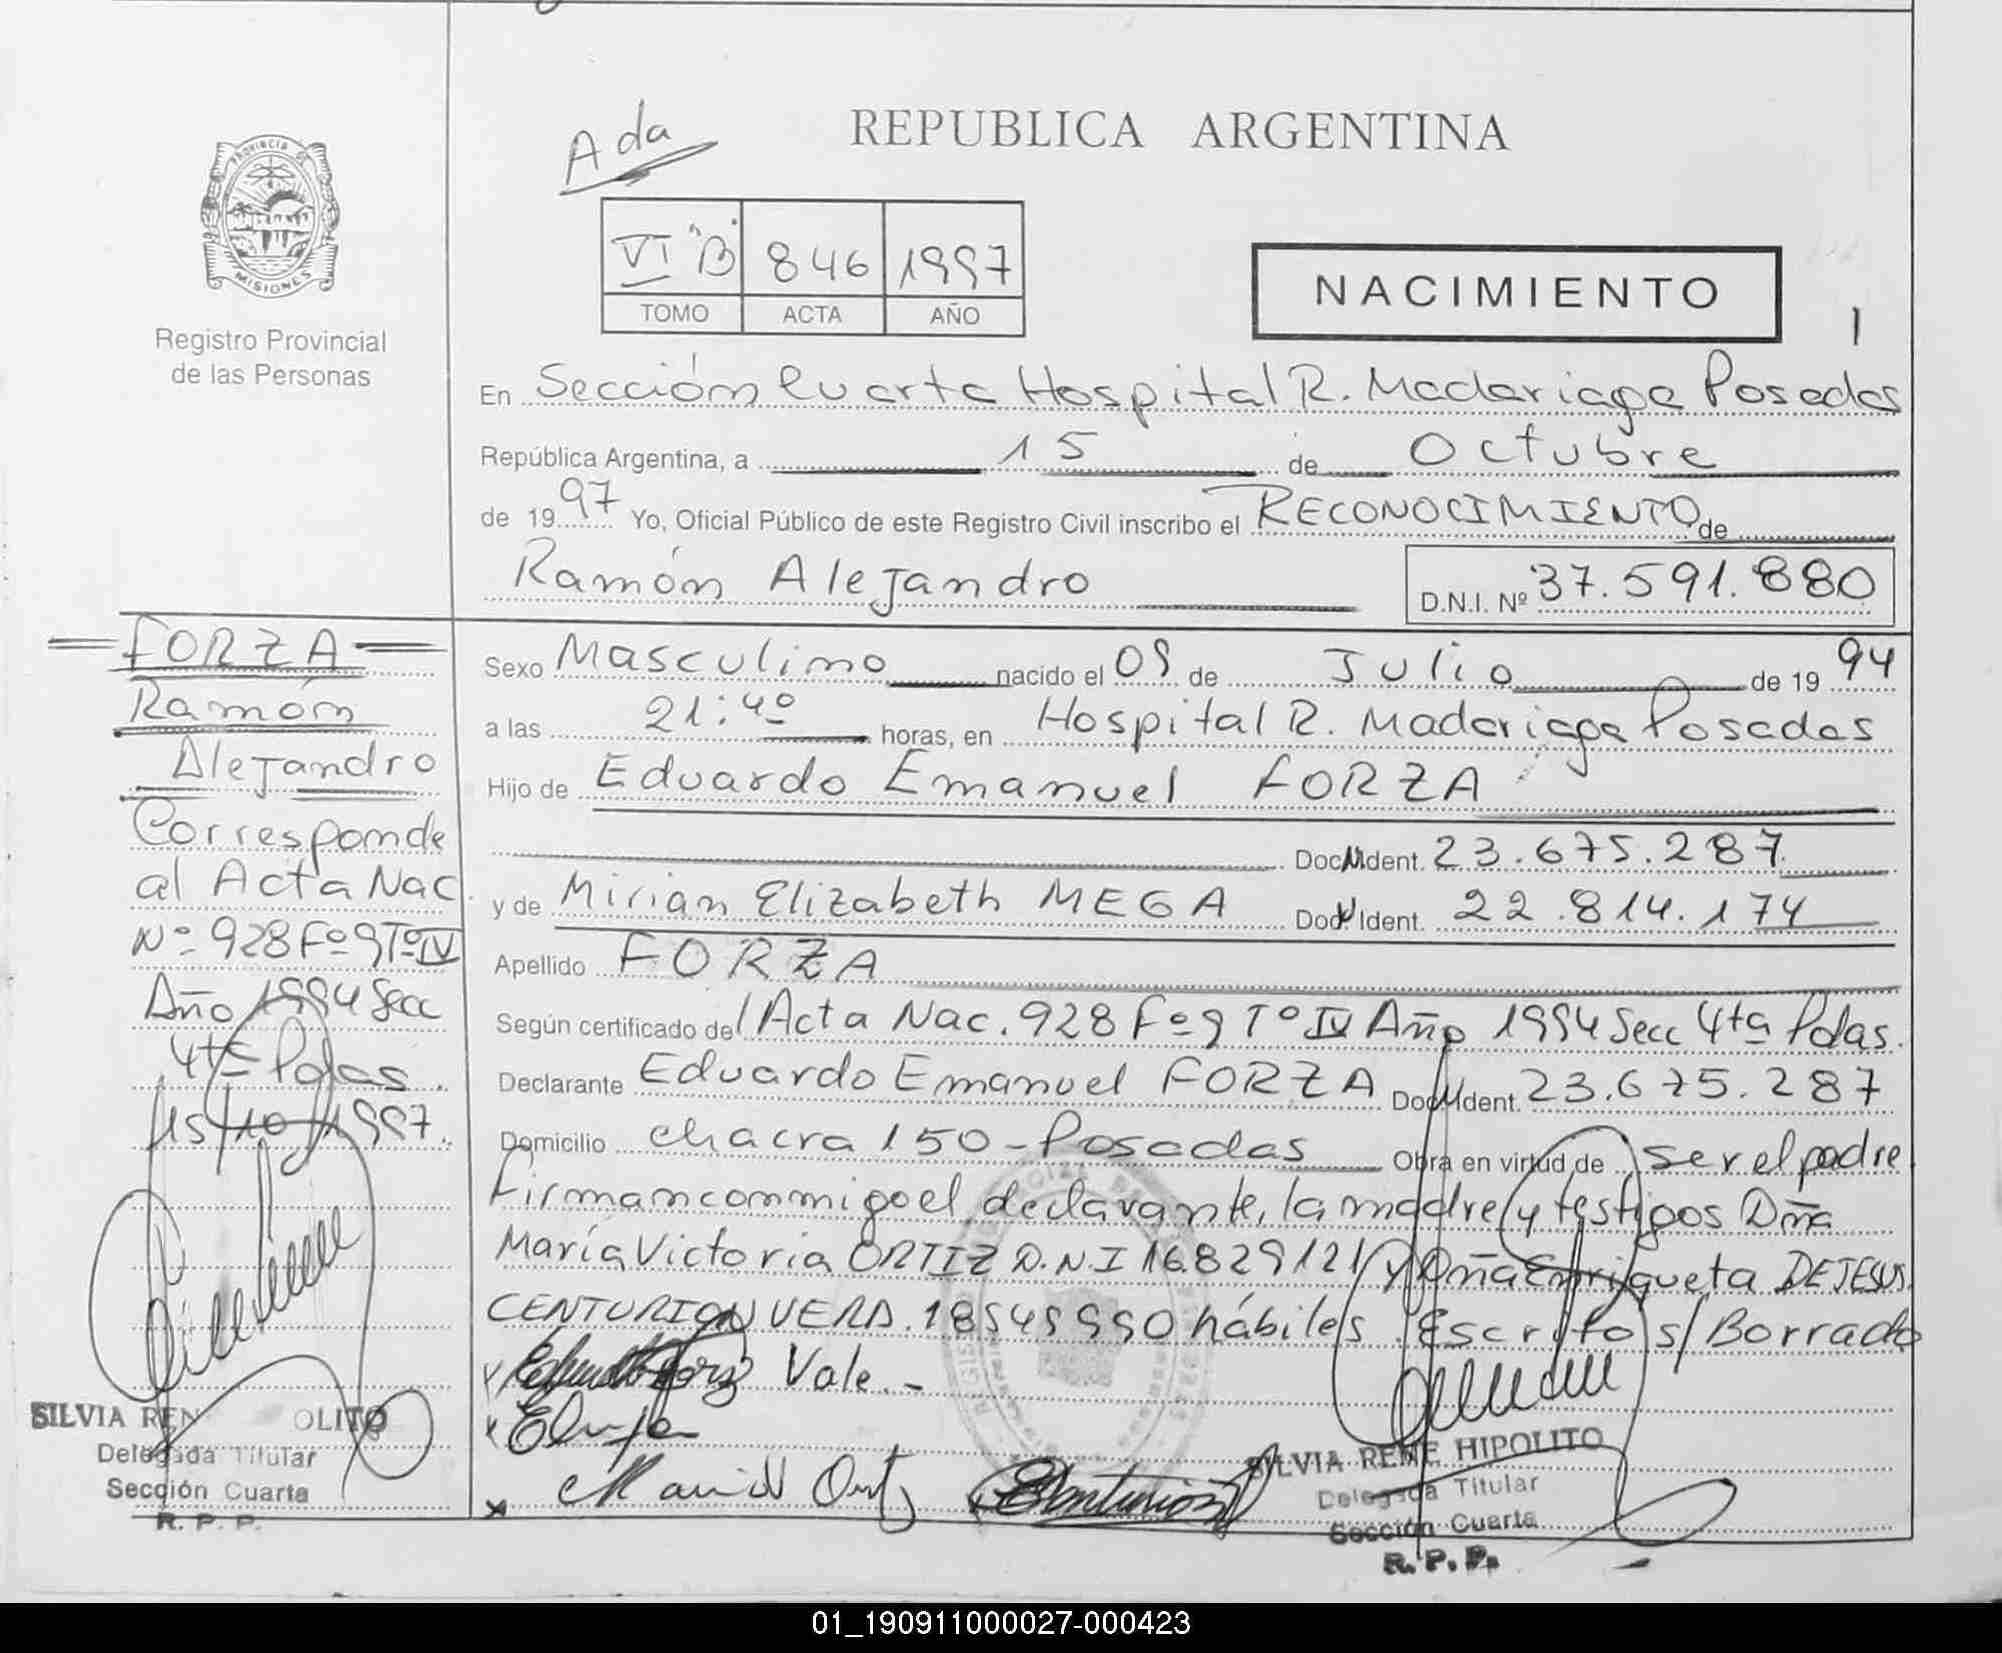 REPUBLICA ARGENTINA
Ada
PROVINCIA DE
MISIONES
Registro Provincial
de las Personas
VI "B" 846 1997
TOMO ACTA AÑO
NACIMIENTO
En Sección Cuarta Hospital R. Madariaga Posadas
República Argentina, a 15 de Octubre
de 1997 Yo, Oficial Público de este Registro Civil inscribo el RECONOCIMIENTO de
Ramón Alejandro D.N.I. Nº 37.591.880
FORZA
Ramón
Alejandro
Corresponde
al Acta Nac
Nº 928 Fº 9 Tº IV
Año 1994 Secc
4ta Pdas.
15/10/1997.
Sexo Masculino nacido el 09 de Julio de 1994
a las 21:40 horas, en Hospital R. Madariaga Posadas
Hijo de Eduardo Emanuel FORZA
Doc. Ident. 23.675.287
y de Mirian Elizabeth MEGA Doc. Ident. 22.814.174
Apellido FORZA
Según certificado del Acta Nac. 928 Fº 9 Tº IV Año 1994 Secc 4ta Pdas.
Declarante Eduardo Emanuel FORZA Doc. Ident. 23.675.287
Domicilio chacra 150 - Posadas Obra en virtud de ser el padre
Firman conmigo el declarante, la madre y testigos Dña
María Victoria ORTIZ D.N.I 16.829121 y Doña Enriqueta DE JESUS
CENTURION VERA. 18549990 hábiles. Escrito s/ Borrado
Vale. -
SILVIA REN OLITO
Delegada Titular
Sección Cuarta
R. P. P.
SILVIA RENE HIPOLITO
Delegada Titular
Sección Cuarta
R. P. P.
01_190911000027-000423